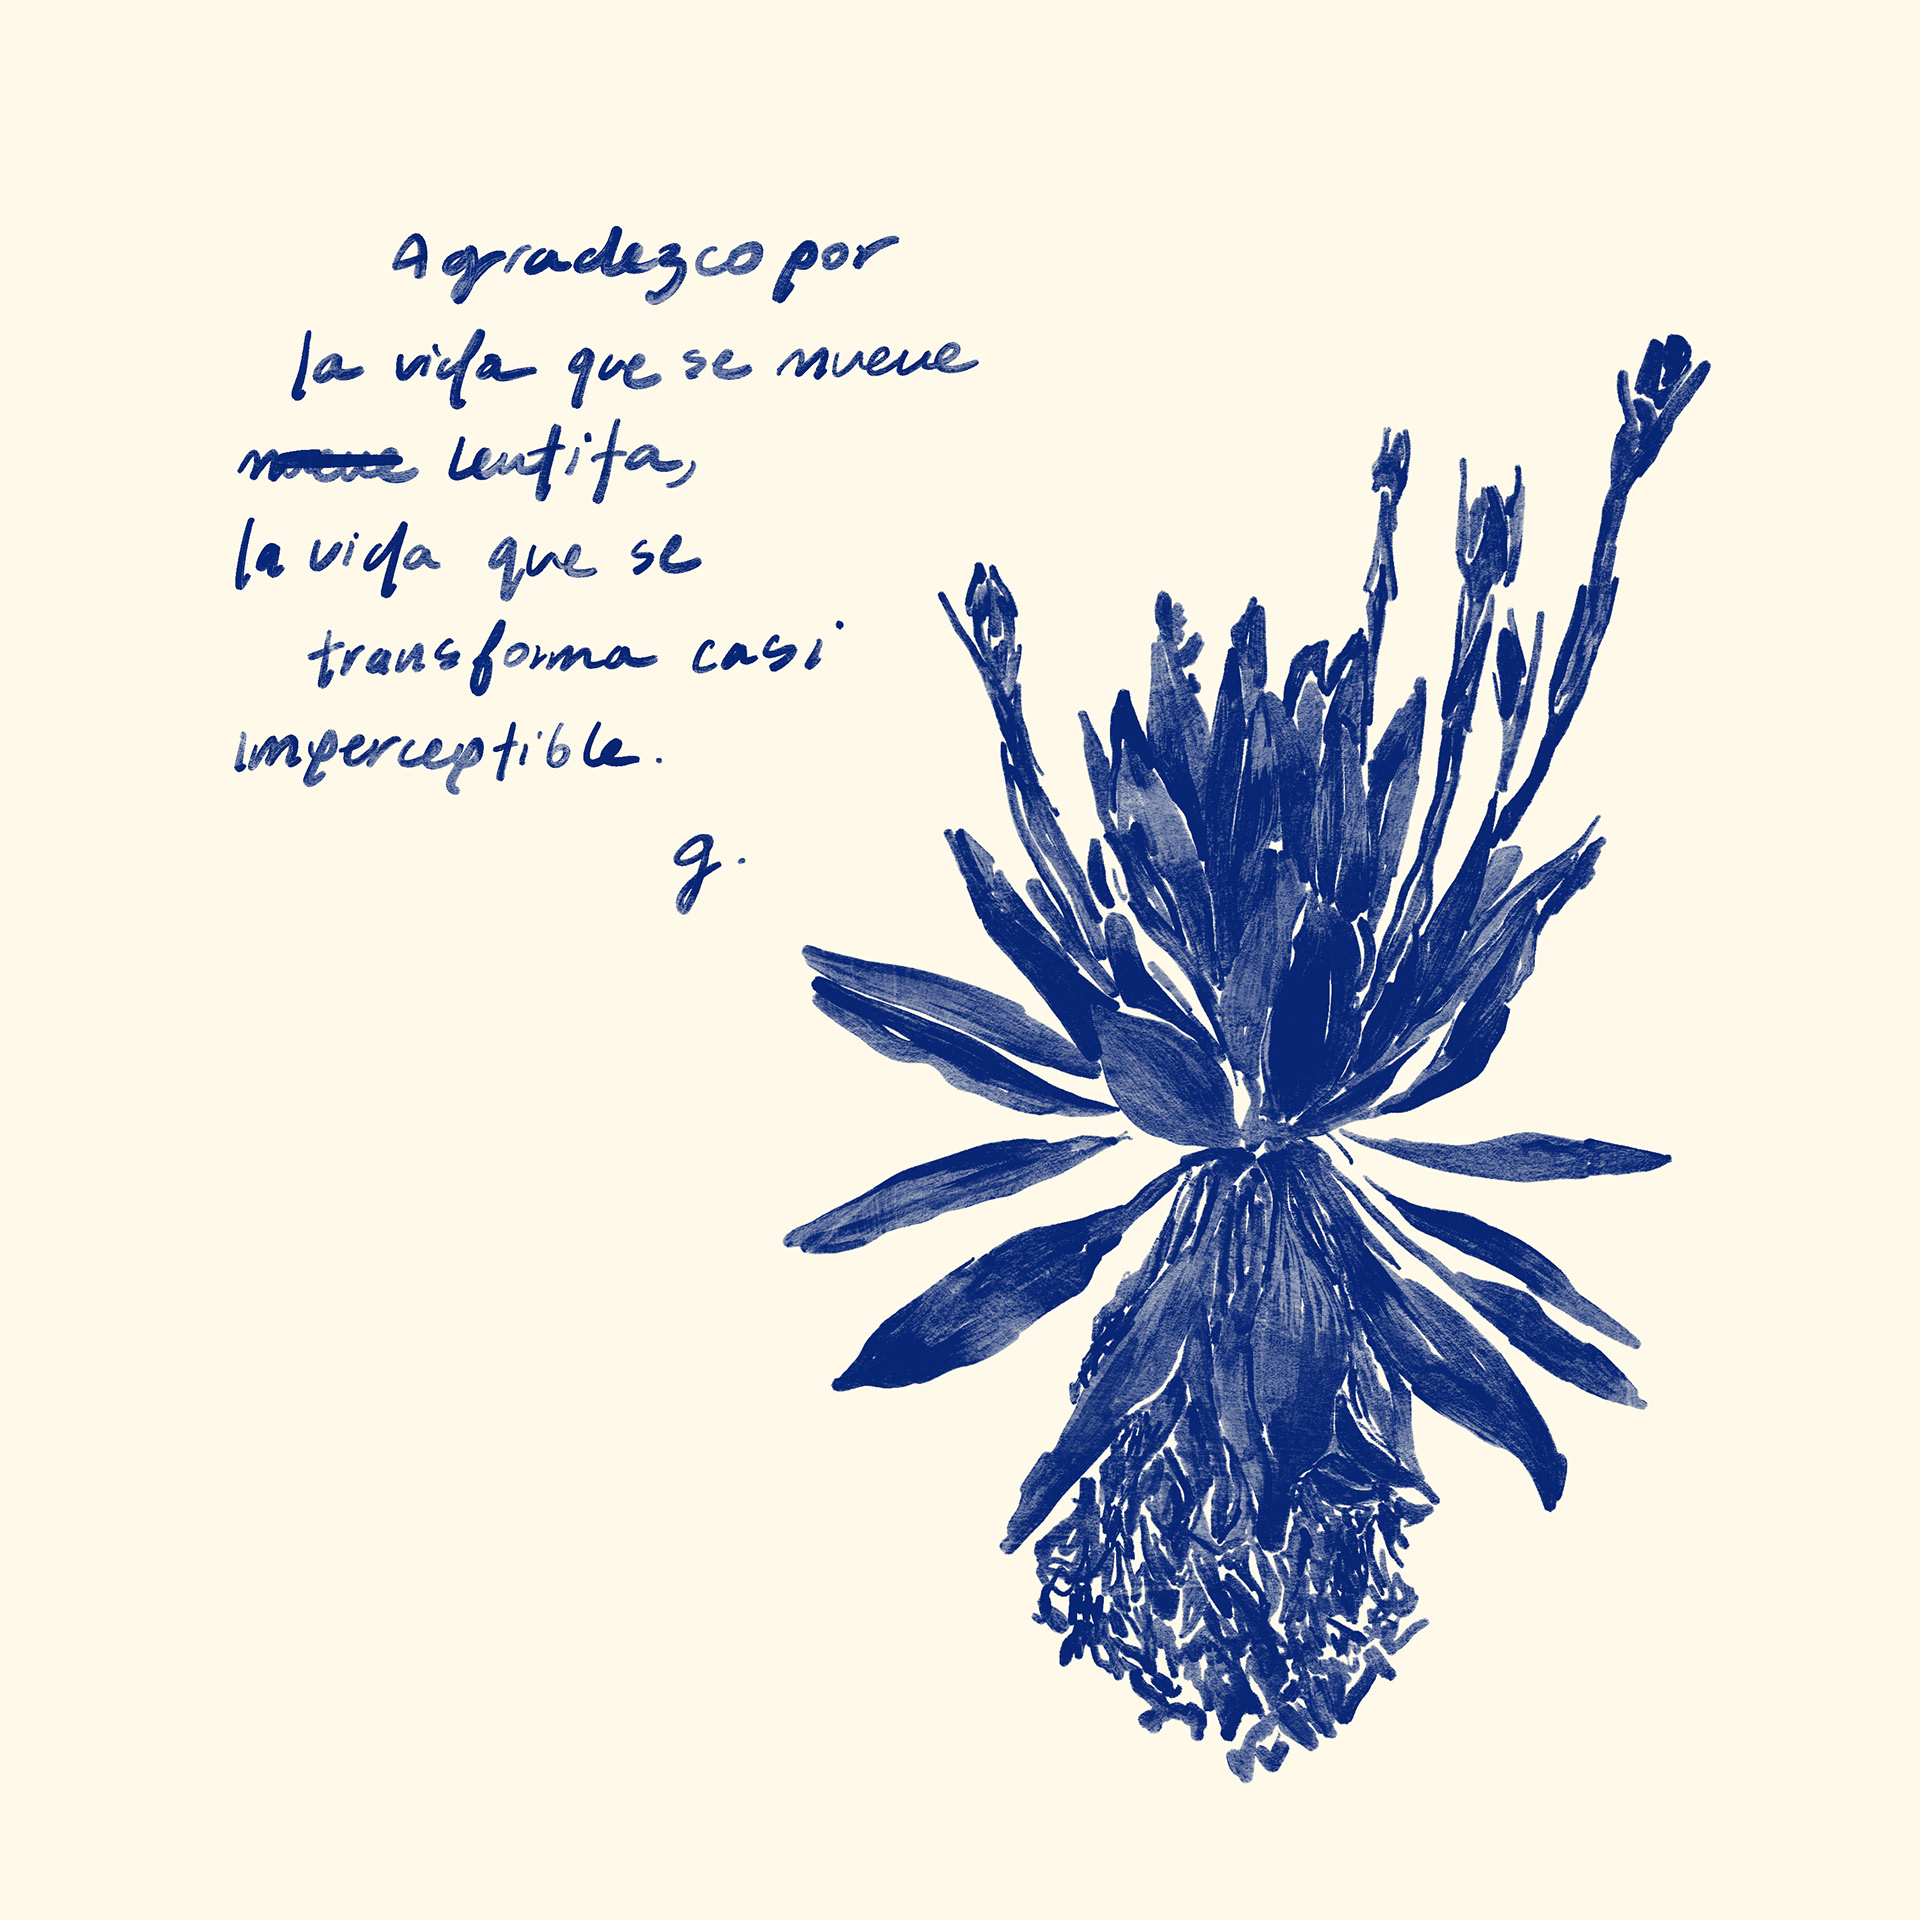 Agradezco por
la vida que se mueve
mueve lentita,
la vida que se
transforma casi
imperceptible.
g.